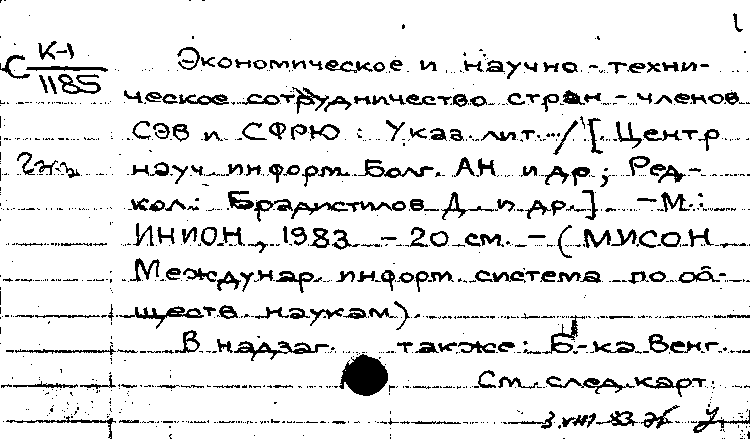 С К-1/1185
Экономическое и научно-техни-
ческое сотрудничество стран-членов
СЭВ и СФРЮ : Указ. лит... / [Центр
науч. информ. Болг. АН и др.; Ред-
кол.: Брадистилов Д. и др.]. - М.:
ИНИОН, 1983 - 20 см. - (МИСОН.
Междунар. информ. система по об-
ществ. наукам).
В надзаг. также: Б-ка Венг.
См. след. карт.
3.VIII 83